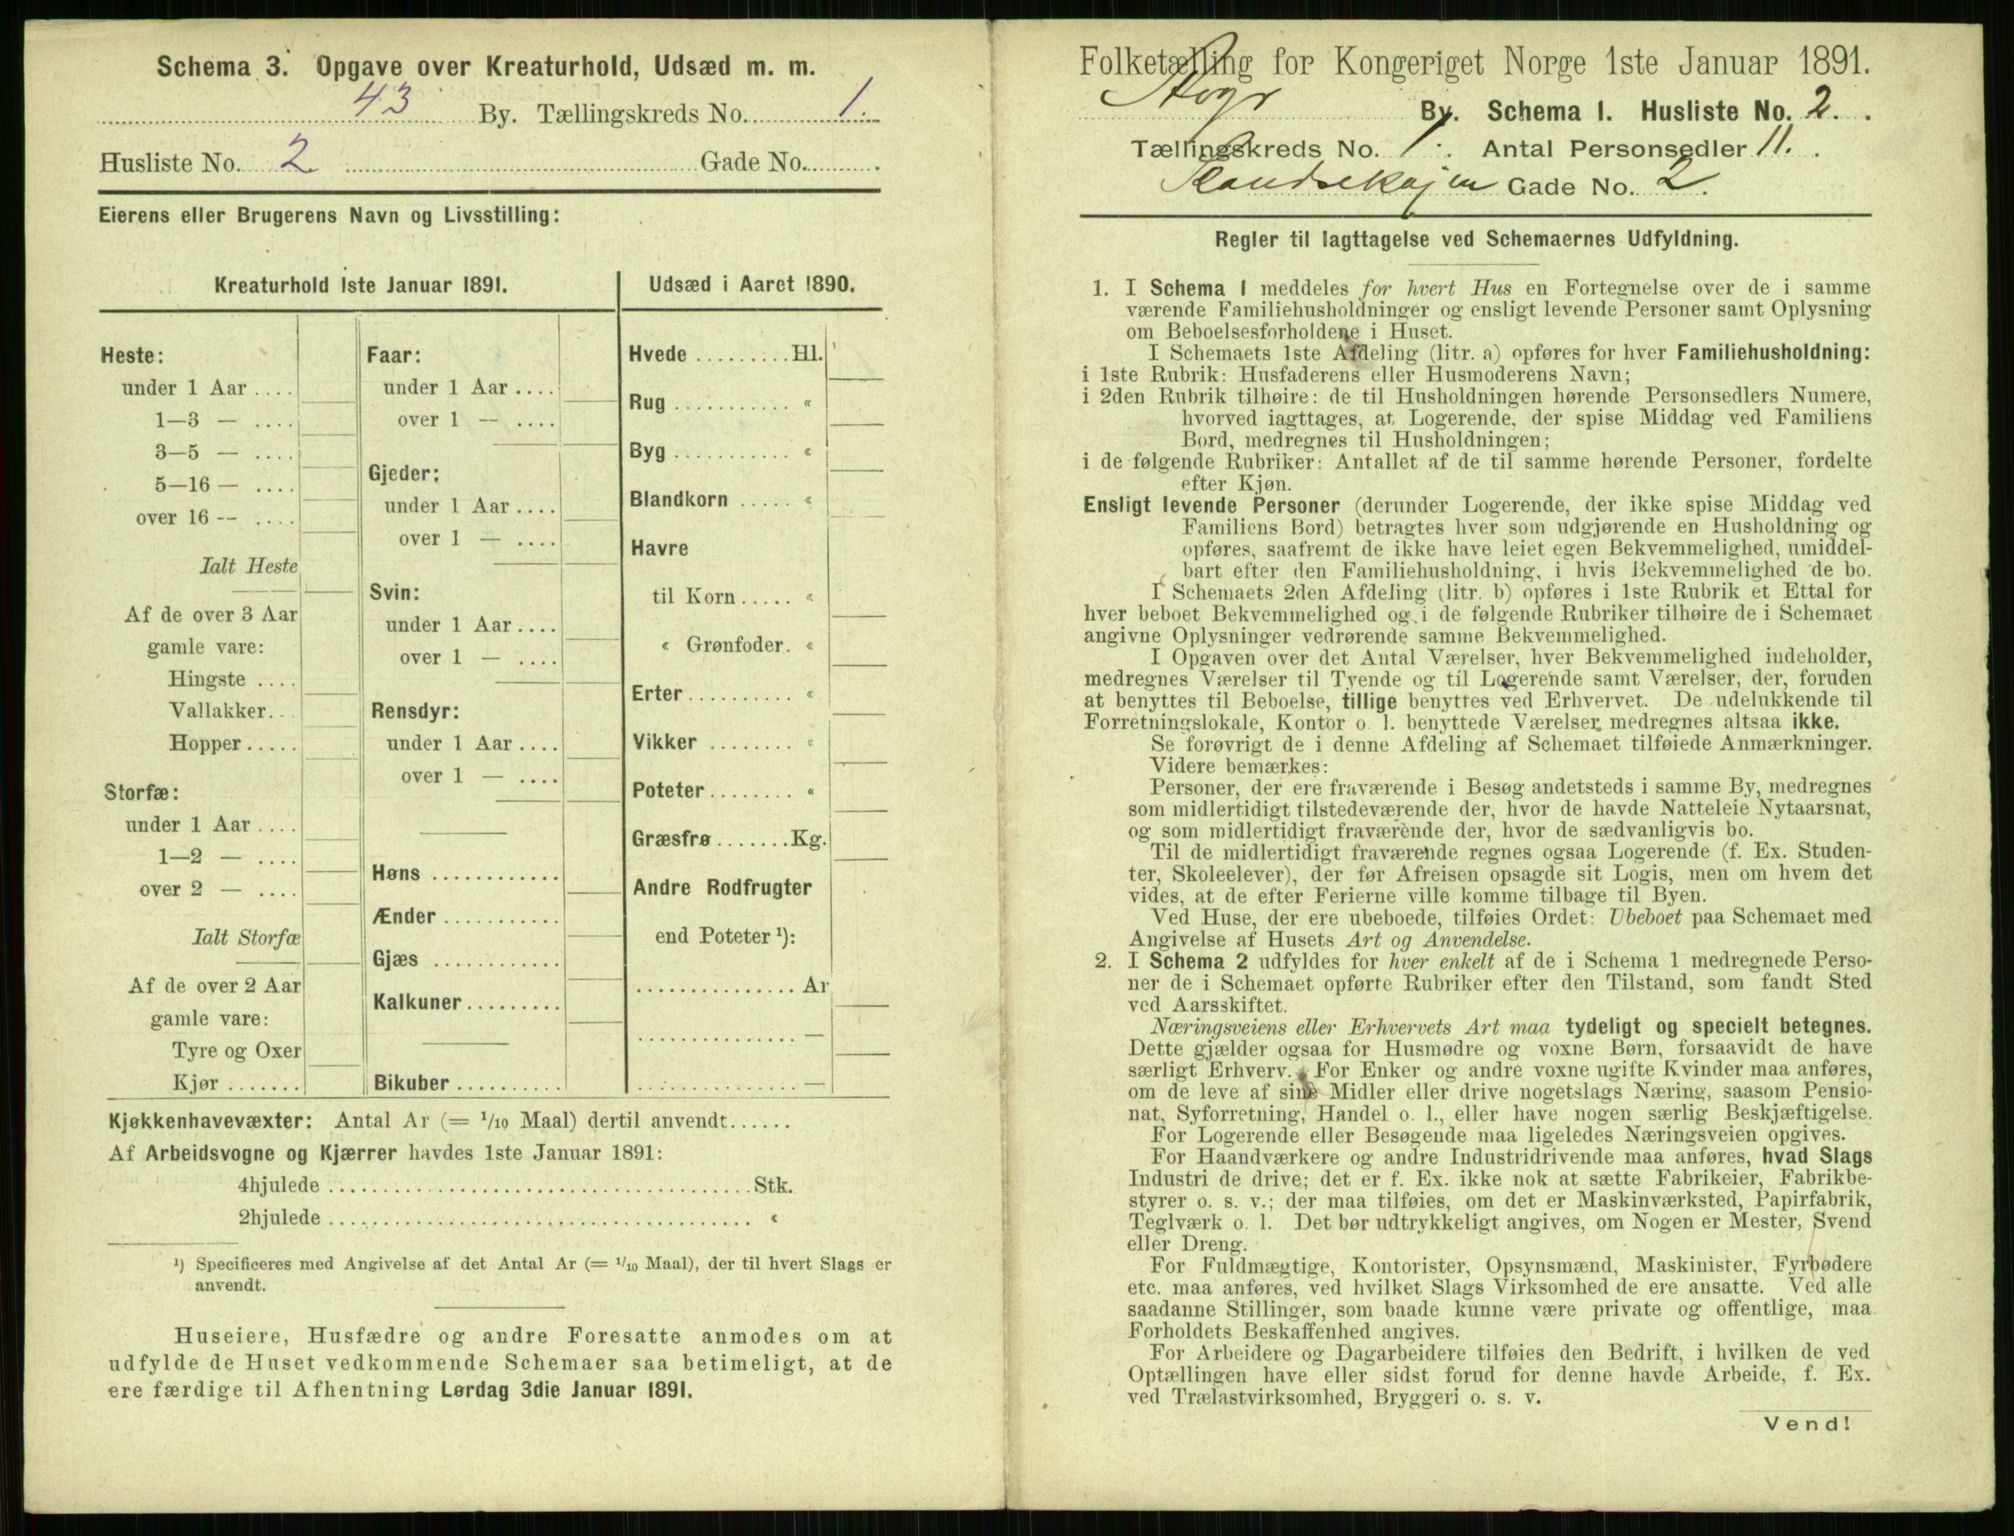 Schema 3. Opgave over Kreaturhold, Udsæd m. m.
43 By. Tællingskreds No. 1.
Husliste No. 2 Gade No.
Eierens eller Brugerens Navn og Livsstilling:
Kreaturhold 1ste Januar 1891.
Heste:
under 1 Aar ....
1—3 — ....
3—5 — ....
5—16 — ....
over 16 -- ....
Ialt Heste
Af de over 3 Aar
gamle vare:
Hingste ....
Vallakker..
Hopper.....
Storfæ:
under 1 Aar ....
1—2 — ....
over 2 — ....
Ialt Storfæ
Af de over 2 Aar
gamle vare:
Tyre og Oxer
Kjør .......
Faar:
under 1 Aar ....
over 1 — ....
Gjeder:
under 1 Aar ....
over 1 — ....
Svin:
under 1 Aar ....
over 1 — ....
Rensdyr:
under 1 Aar ....
over 1 — ....
Høns ............
Ænder ...........
Gjæs ............
Kalkuner.........
Bikuber ..........
Udsæd i Aaret 1890.
Hvede .........Hl.
Rug ........... «
Byg ........... «
Blandkorn ..... «
Havre
til Korn..... «
« Grønfoder. «
Erter.......... «
Vikker ........ «
Poteter........ «
Græsfrø .......Kg.
Andre Rodfrugter
end Poteter ¹):
............... Ar
............... —
............... —
Kjøkkenhavevæxter: Antal Ar (= 1/10 Maal) dertil anvendt......
Af Arbeidsvogne og Kjærrer havdes 1ste Januar 1891:
4hjulede ....................................... Stk.
2hjulede ....................................... «
¹) Specificeres med Angivelse af det Antal Ar (= 1/10 Maal), der til hvert Slags er
anvendt.
Huseiere, Husfædre og andre Foresatte anmodes om at
udfylde de Huset vedkommende Schemaer saa betimeligt, at de
ere færdige til Afhentning Lørdag 3die Januar 1891.
Folketælling for Kongeriget Norge 1ste Januar 1891.
By. Schema I. Husliste No. 2.
Tællingskreds No. 1. Antal Personsedler 11.
Gade No. 2.
Regler til Iagttagelse ved Schemaernes Udfyldning.
1. I Schema 1 meddeles for hvert Hus en Fortegnelse over de i samme
værende Familiehusholdninger og ensligt levende Personer samt Oplysning
om Beboelsesforholdene i Huset.
I Schemaets 1ste Afdeling (litr. a) opføres for hver Familiehusholdning:
i 1ste Rubrik: Husfaderens eller Husmoderens Navn;
i 2den Rubrik tilhøire: de til Husholdningen hørende Personsedlers Numere,
hvorved iagttages, at Logerende, der spise Middag ved Familiens
Bord, medregnes til Husholdningen;
i de følgende Rubriker: Antallet af de til samme hørende Personer, fordelte
efter Kjøn.
Ensligt levende Personer (derunder Logerende, der ikke spise Middag ved
Familiens Bord) betragtes hver som udgjørende en Husholdning og
opføres, saafremt de ikke have leiet egen Bekvemmelighed, umiddel-
bart efter den Familiehusholdning, i hvis Bekvemmelighed de bo.
I Schemaets 2den Afdeling (litr. b) opføres i 1ste Rubrik et Ettal for
hver beboet Bekvemmelighed og i de følgende Rubriker tilhøire de i Schemaet
angivne Oplysninger vedrørende samme Bekvemmelighed.
I Opgaven over det Antal Værelser, hver Bekvemmelighed indeholder,
medregnes Værelser til Tyende og til Logerende samt Værelser, der, foruden
at benyttes til Beboelse, tillige benyttes ved Erhvervet. De udelukkende til
Forretningslokale, Kontor o. l. benyttede Værelser medregnes altsaa ikke.
Se forøvrigt de i denne Afdeling af Schemaet tilføiede Anmærkninger.
Videre bemærkes:
Personer, der ere fraværende i Besøg andetsteds i samme By, medregnes
som midlertidigt tilstedeværende der, hvor de havde Natteleie Nytaarsnat,
og som midlertidigt fraværende der, hvor de sædvanligvis bo.
Til de midlertidigt fraværende regnes ogsaa Logerende (f. Ex. Studen-
ter, Skoleelever), der før Afreisen opsagde sit Logis, men om hvem det
vides, at de efter Ferierne ville komme tilbage til Byen.
Ved Huse, der ere ubeboede, tilføies Ordet: Ubeboet paa Schemaet med
Angivelse af Husets Art og Anvendelse.
2. I Schema 2 udfyldes for hver enkelt af de i Schema 1 medregnede Perso-
ner de i Schemaet opførte Rubriker efter den Tilstand, som fandt Sted
ved Aarsskiftet.
Næringsveiens eller Erhvervets Art maa tydeligt og specielt betegnes.
Dette gjælder ogsaa for Husmødre og voxne Børn, forsaavidt de have
særligt Erhverv. For Enker og andre voxne ugifte Kvinder maa anføres,
om de leve af sine Midler eller drive nogetslags Næring, saasom Pensio-
nat, Syforretning, Handel o. l., eller have nogen særlig Beskjæftigelse.
For Logerende eller Besøgende maa ligeledes Næringsveien opgives.
For Haandværkere og andre Industridrivende maa anføres, hvad Slags
Industri de drive; det er f. Ex. ikke nok at sætte Fabrikeier, Fabrikbe-
styrer o. s. v.; der maa tilføies, om det er Maskinværksted, Papirfabrik,
Teglværk o. l. Det bør udtrykkeligt angives, om Nogen er Mester, Svend
eller Dreng.
For Fuldmægtige, Kontorister, Opsynsmænd, Maskinister, Fyrbødere
etc. maa anføres, ved hvilket Slags Virksomhed de ere ansatte. Ved alle
saadanne Stillinger, som baade kunne være private og offentlige, maa
Forholdets Beskaffenhed angives.
For Arbeidere og Dagarbeidere tilføies den Bedrift, i hvilken de ved
Optællingen have eller sidst forud for denne havde Arbeide, f. Ex.
ved Trælastvirksomhed, Bryggeri o. s. v.
Vend!